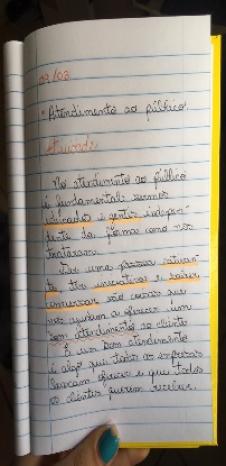 09/03
* Atendimento ao público
Atividade
No atendimento ao público
é fundamental sermos
educados e gentis indepen-
dente da forma como nos
trataram.
Ser uma pessoa
ter iniciativa e saber
conversar são coisas que
nos ajudam a oferecer um
bom atendimento ao cliente
E um bom atendimento
é algo que todas as empresas
buscam oferecer e que todos
os clientes querem receber.